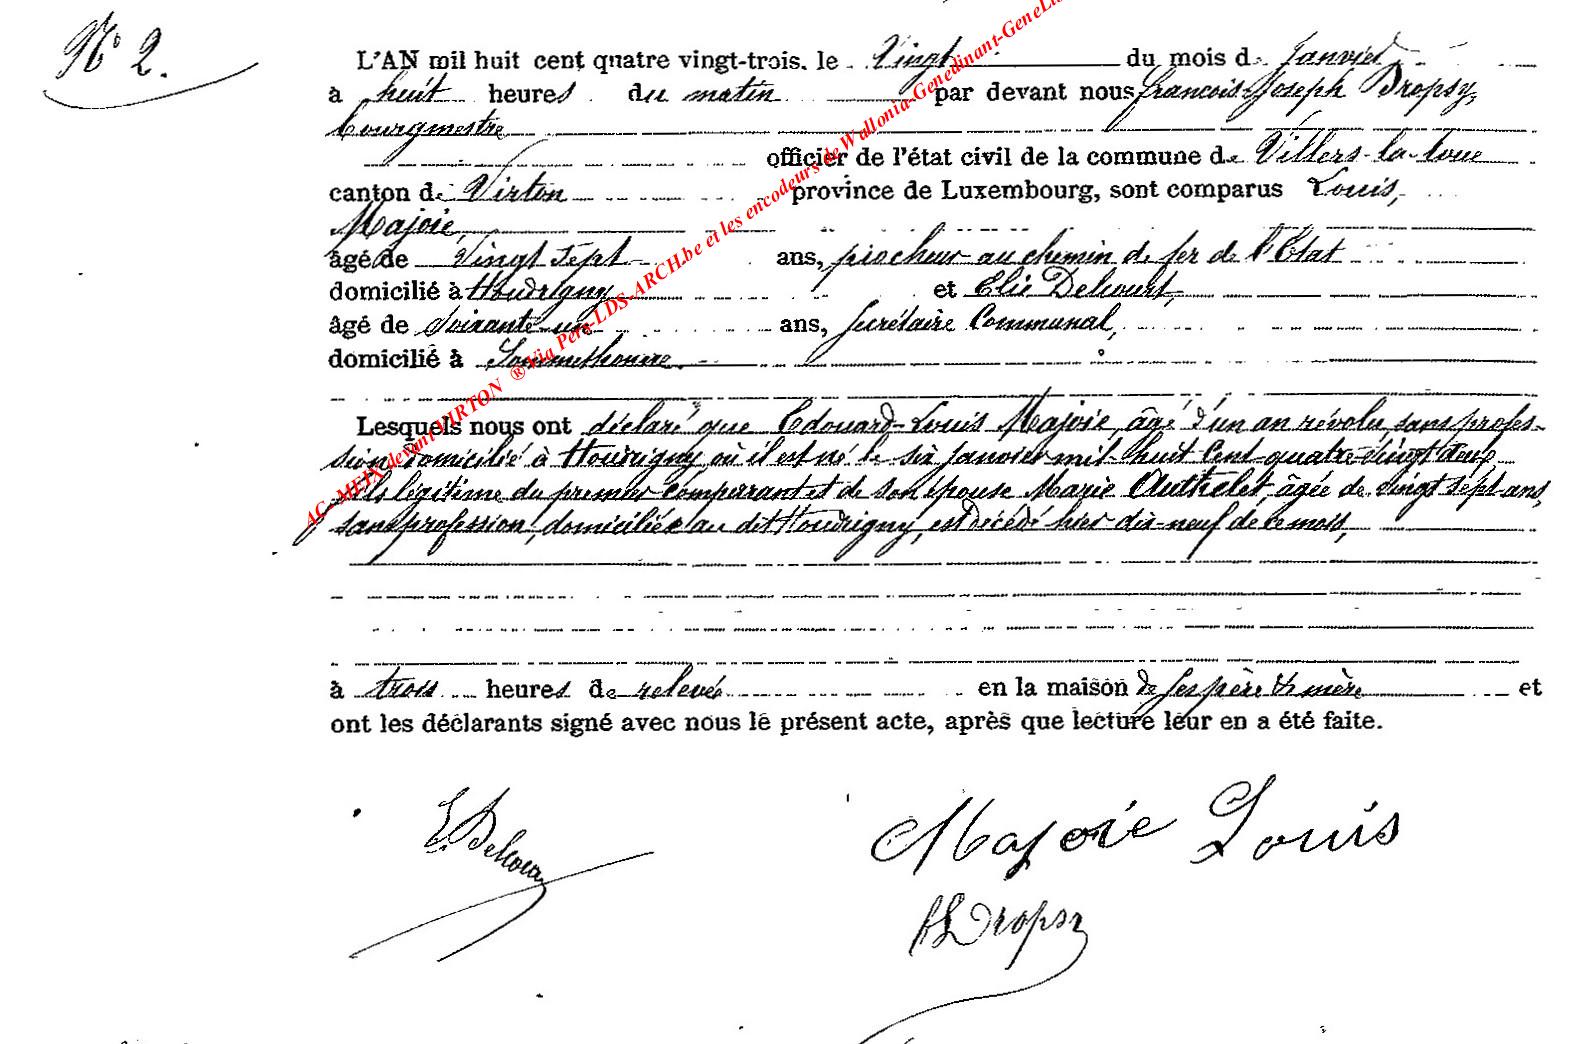 N° 2.
L'AN mil huit cent quatre vingt-trois, le vingt du mois de Janvier
à huit heures du matin par devant nous françois-Joseph Dropsy,
bourgmestre
officier de l'état civil de la commune de Villers-la-loue
canton de Virton province de Luxembourg, sont comparus Louis,
Majoie,
âgé de vingt sept ans, piocheur au chemin de fer de l'Etat
domicilié à Houdrigny et Elie Delcourt,
âgé de soixante-un ans, secrétaire Communal,
domicilié à Sommethonne.
Lesquels nous ont déclaré que Edouard-Louis Majoie, âgé d'un an révolu, sans profes-
sion, domicilié à Houdrigny où il est né le six Janvier mil-huit-cent-quatre-vingt deux
fils légitime du premier comparrant et de son épouse Marie Authelet, âgée de vingt sept ans,
sans profession, domiciliée au dit Houdrigny, est décédé hier dix-neuf de ce mois,
à trois heures de relevée en la maison de ses père & mère et
ont les déclarants signé avec nous le présent acte, après que lecture leur en a été faite.
E. Delcourt
Majoie Louis
Dropsy
AC-MEIX devant VIRTON ® Via Pers-LDS-ARCH.be et les encodeurs de Wallonia-Genedinant-GeneLis